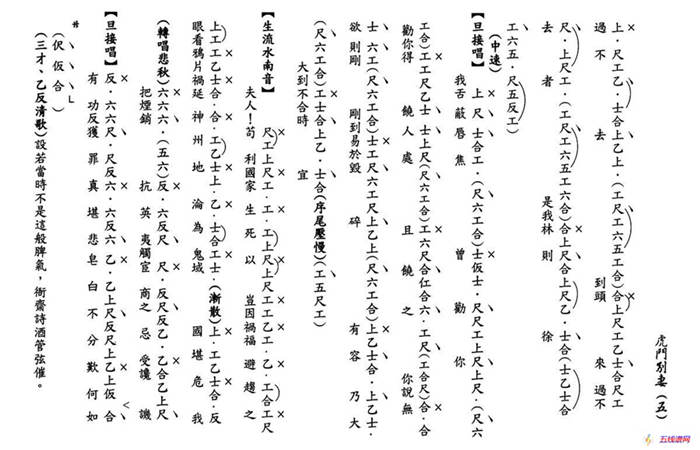 虎門別妻（五）
上．尺工乙．士合上乙上．（工尺工六五工合）合上尺工乙士合尺工
過不去到頭來過不
尺．上尺工．（工尺工六五工六合）合上尺合上尺乙．士合（士乙士合
去者是我林則徐
工六五．尺五反工）
（中速）
【旦接唱】上尺士合工．（尺六工合）士仮士．尺尺工上尺上尺．（尺六
我舌蔽唇焦曾勸你
工合）工工尺乙士士上尺（尺六工合）工六尺合仜合六．工尺（工合尺）合．合
勸你得饒人處且饒之你說無
士六工（尺六工合）士工尺六工尺上乙上（尺六工合）上乙士合．上乙士．
欲則剛剛到易於毀碎有容乃大
（尺六工合）工士合上乙．士合（序尾壓慢）（工五尺工）
大到不合時宜
【生流水南音】尺工上尺工．工．工上尺工工乙工．乙工合工尺
夫人！苟利國家生死以豈因禍福避趨之
上工工乙士合．合．工乙士上．乙．士合工士．（漸散）上．工乙士合．反
眼看鴉片禍延神州地淪為鬼域國堪危我
（轉唱悲秋）六六六．（五六）反．六反尺尺．反尺反乙．乙合乙上尺
把煙銷抗英夷觸宦商之忌受讒譏
【旦接唱】反．六六尺．尺反六．六反六乙．乙上尺反尺上乙上仮合
有功反獲罪真堪悲皂白不分歎何如
（伬仮合）
（三才、乙反清歌）設若當時不是這般脾氣，衙齋詩酒管弦催。
五线谱网